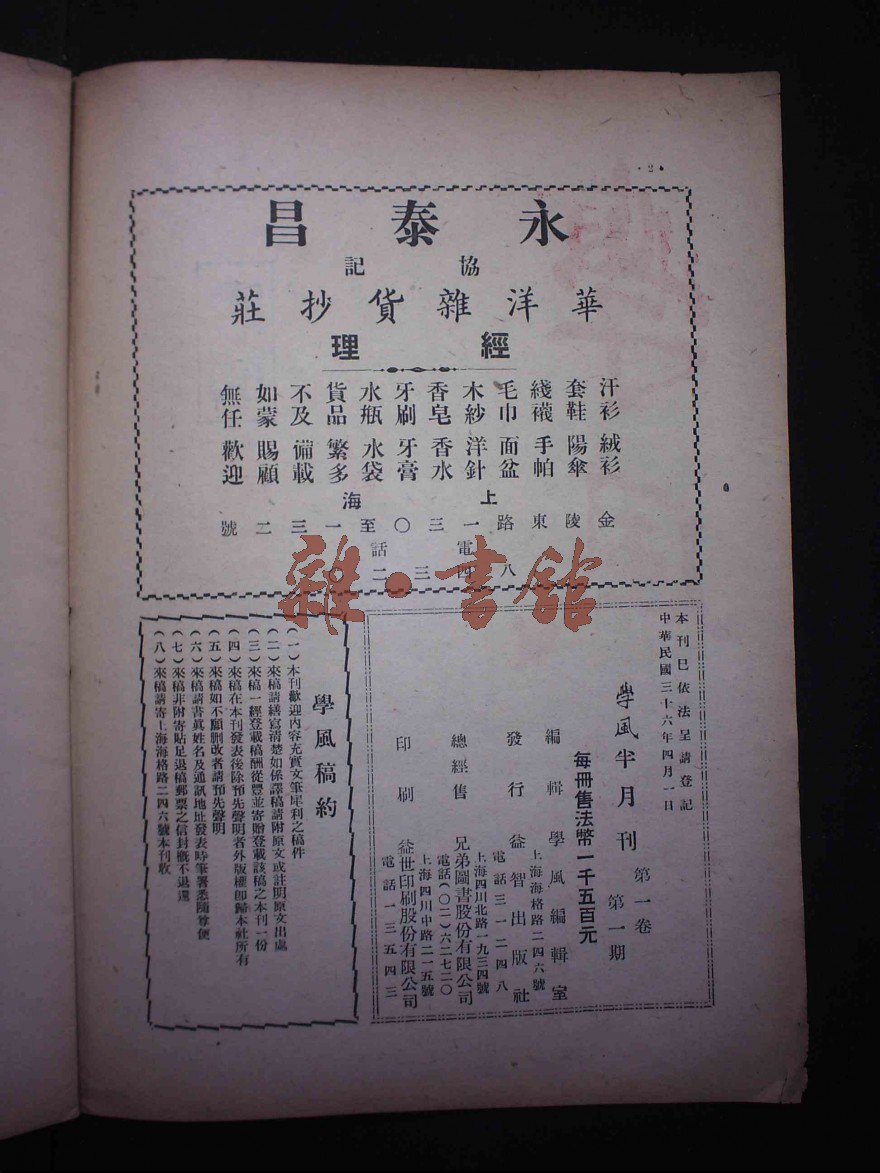 2
永泰昌
協記
華洋雜貨抄莊
經理
汗衫 絨衫
套鞋 陽傘
綫襪 手帕
毛巾 面盆
木紗 洋針
香皂 香水
牙刷 牙膏
水瓶 水袋
貨品 繁多
不及 備載
如蒙 賜顧
無任 歡迎
上海
金陵東路一三〇至一三二號
電話
八四三二〇
本刊已依法呈請登記
中華民國三十六年四月一日
學風半月刊 第一卷 第一期
每冊售法幣一千五百元
編輯 學風編輯室
上海海格路二四六號
發行 益智出版社
電話三一二四八
總經售 兄弟圖書股份有限公司
上海四川北路一九三四號
電話(〇二)六二七二〇
印刷 益世印刷股份有限公司
上海四川中路二一五號
電話一三五四三
學風稿約
(一)本刊歡迎內容充實文筆犀利之稿件
(二)來稿請繕寫清楚如係譯稿請附原文或註明原文出處
(三)來稿一經登載稿酬從豐並寄贈登載該稿之本刊一份
(四)來稿在本刊發表後除預先聲明者外版權卽歸本社所有
(五)來稿如不願刪改者請預先聲明
(六)來稿請書眞姓名及通訊地址發表時筆署悉隨尊便
(七)來稿非附寄貼足退稿郵票之信封概不退還
(八)來稿請寄上海海格路二四六號本刊收
雜·書館